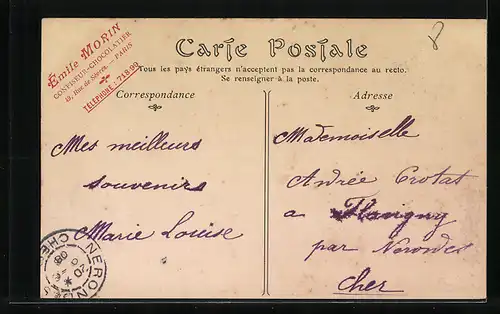 Émile MORIN
CONFISEUR-CHOCOLATIER
48, Rue de Sèvres. — PARIS
TÉLÉPHONE: 718-90
Carte Postale
Tous les pays étrangers n'acceptent pas la correspondance au recto.
Se renseigner à la poste.
Correspondance
Mes meilleurs
souvenirs
Marie Louise
Adresse
Mademoiselle
Andrée Crotat
a Flavigny
par Nerondes
Cher
NERONDES
CHER
08